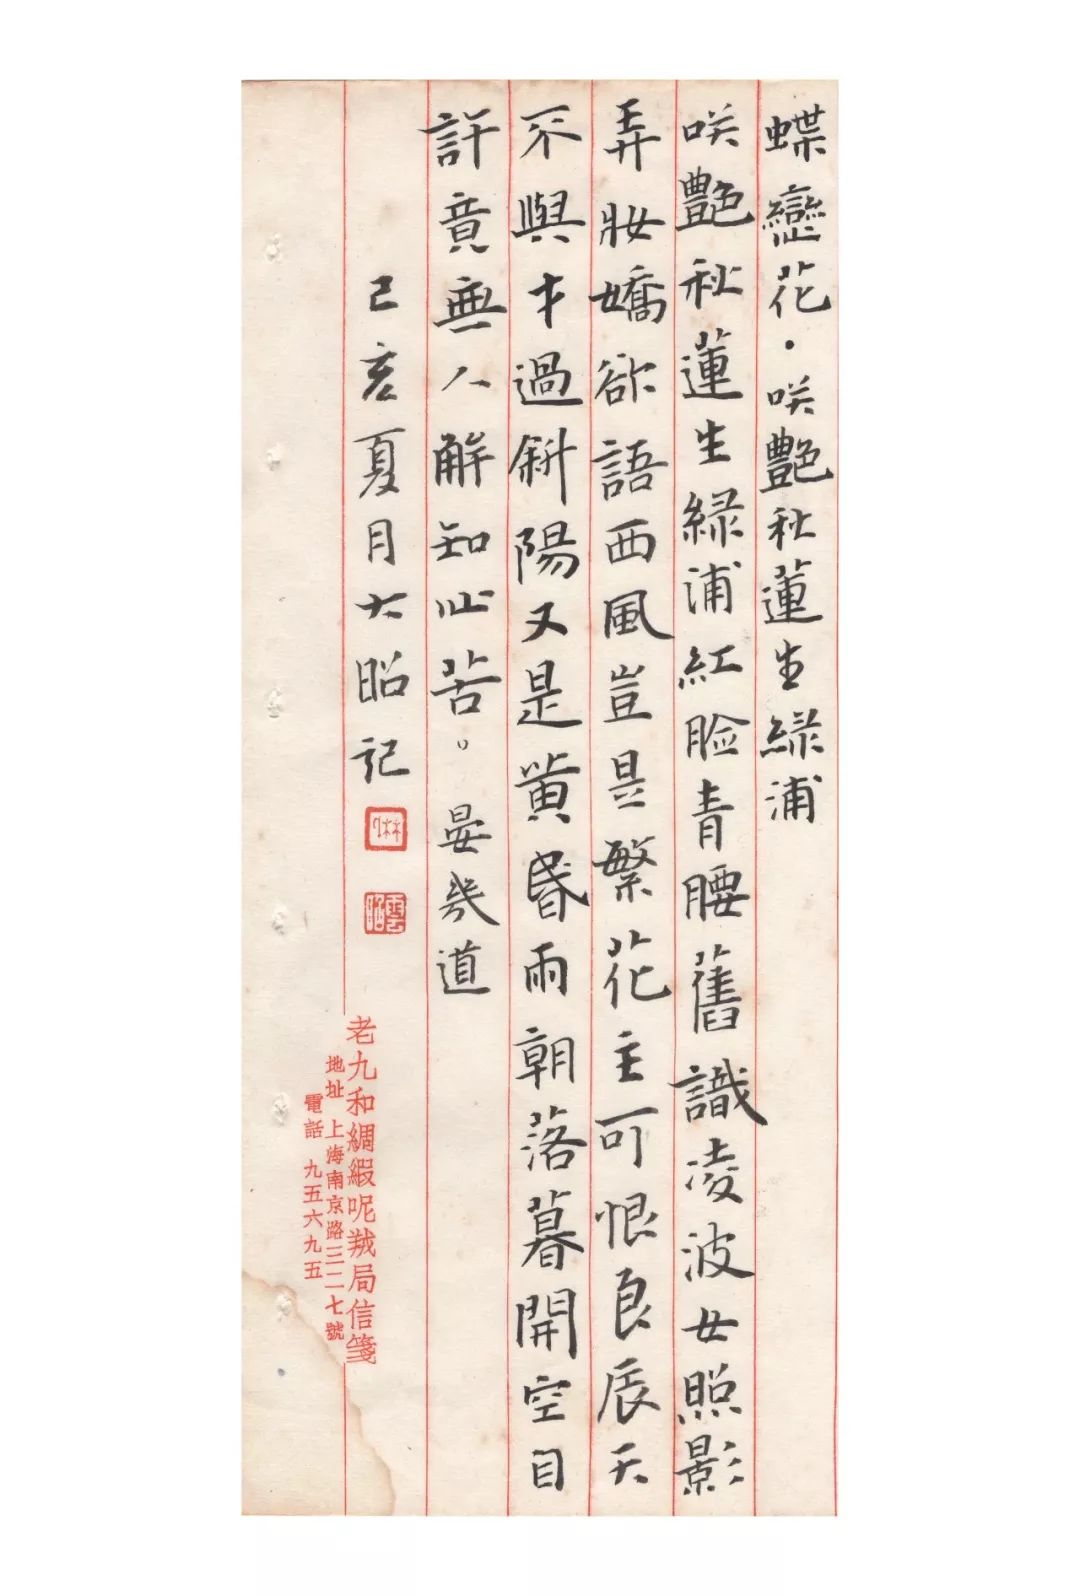 蝶戀花·咲艶秋蓮生緑浦
咲艶秋蓮生緑浦紅脸青腰舊識凌波女照影
弄妝嬌欲語西風豈是繁花主可恨良辰天
不與才過斜陽又是黄昏雨朝落暮開空自
許竟無人解知心苦。晏幾道
己亥夏月大昭記
老九和綢緞呢羢局信箋
地址 上海南京路三二七號
電話 九五六九五